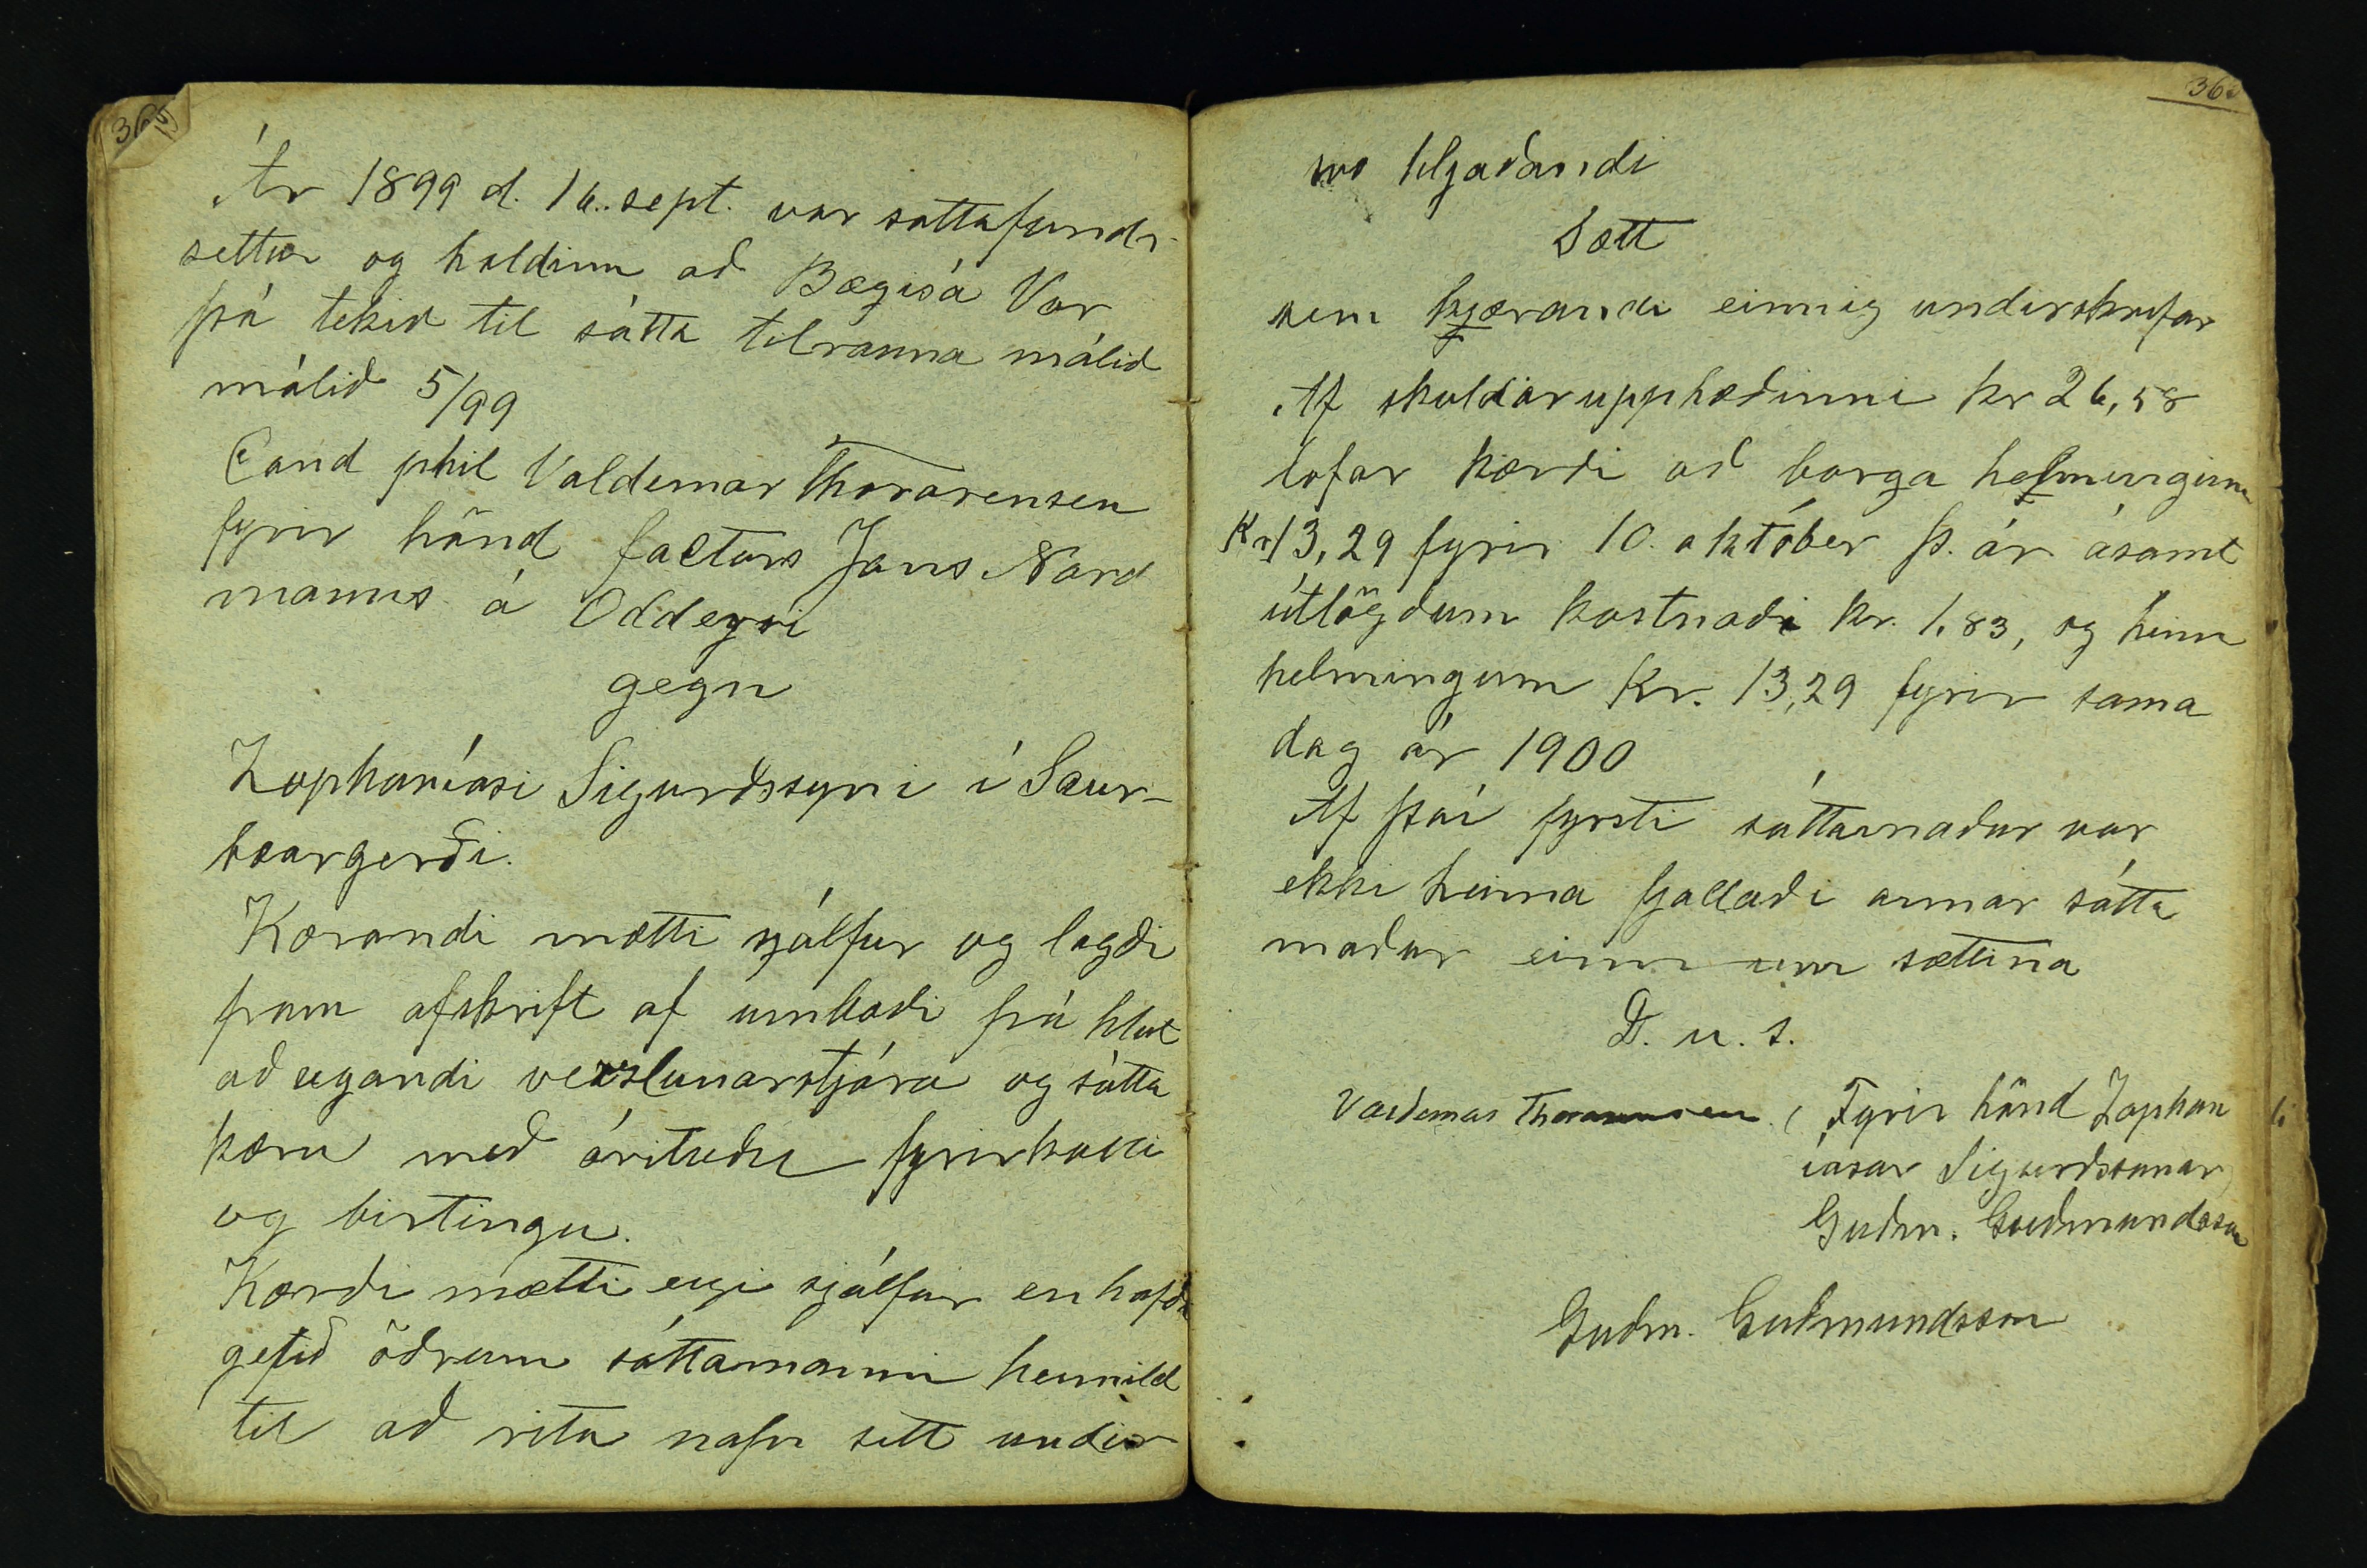 Ár 1899 d. 16. sept. var sáttafundr
settur og haldinn að Bægisá Var
þá tekið til sátta tilrauna málið
málið 5/99
Cand phil Valdemar Thorarensen
fyrir hönd factors Jans Nord
manns á Oddeyri
gegn
Zophaníasi Sigurðssyni í Saur-
bæargerði.
Kærandi mætti sjálfur og lagði
fram afskrift af umboði frá hlut
aðeigandi verslunarstjóra og sátta
kæru með árituðu fyrirkalli
og birtingu.
Kærði mætti eigi sjálfur en hafði
gefið öðrum sáttamanni heimild
til að rita nafn sitt undir
svo hljóðandi
Sætt
sem kjærandi einnig undirskrifar
Af skuldarupphæðinni kr 26,58
lofar kærði að borga helminginn
Kr 13,29 fyrir 10. október þ. ár ásamt
útlögðum kostnaði kr. 1,83, og hinn
helmingum Kr. 13,29 fyrir sama
dag ár 1900
Af því fyrsti sáttamaður var
ekki heima fjallaði annar sátta
maður einn um sættina
D. u. s.
Valdemar Thorarensen. (Fyrir hönd Zophan
íasar Sigurðssonar)
Guðm. Guðmundsson
Guðm. Guðmundsson